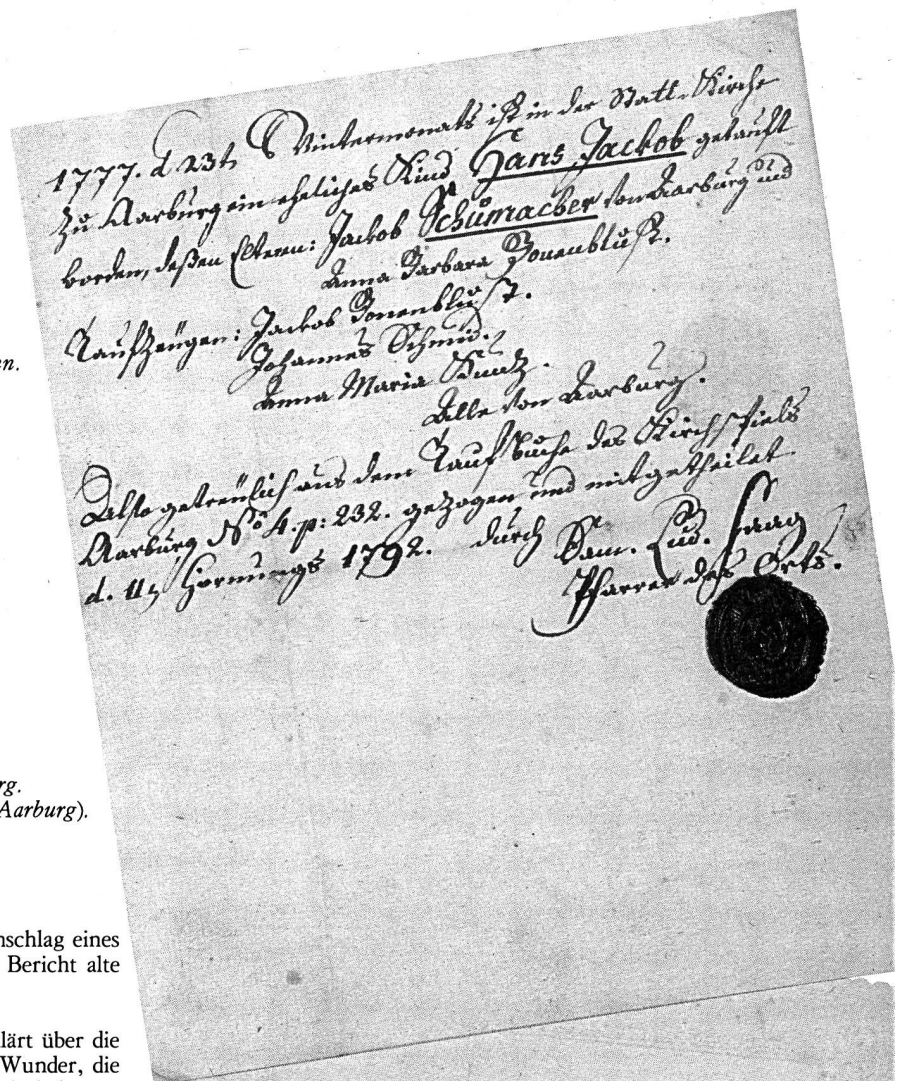 1777. d. 23t. Wintermonats ist in der Statt-Kirche
zu Aarburg ein eheliches Kind Hans Jackob getauft
worden, deßen Elteren: Jackob Schumacher von Aarburg und
Anna Barbara Bonenblust.
Taufzeugen: Jackob Bonenblust.
Johannes Schmid.
Anna Maria
Alle von Aarburg.
Also getreülich aus dem Taufbuche des Kirchspiels
Aarburg No 4. p: 232. gezogen und mitgetheilet
d. 11 Hornungs 1792. durch Sam. Lud. Haag
Pfarrer des Orts.
n.
rg.
Aarburg).
nschlag eines
Bericht alte
lärt über die
Wunder, die